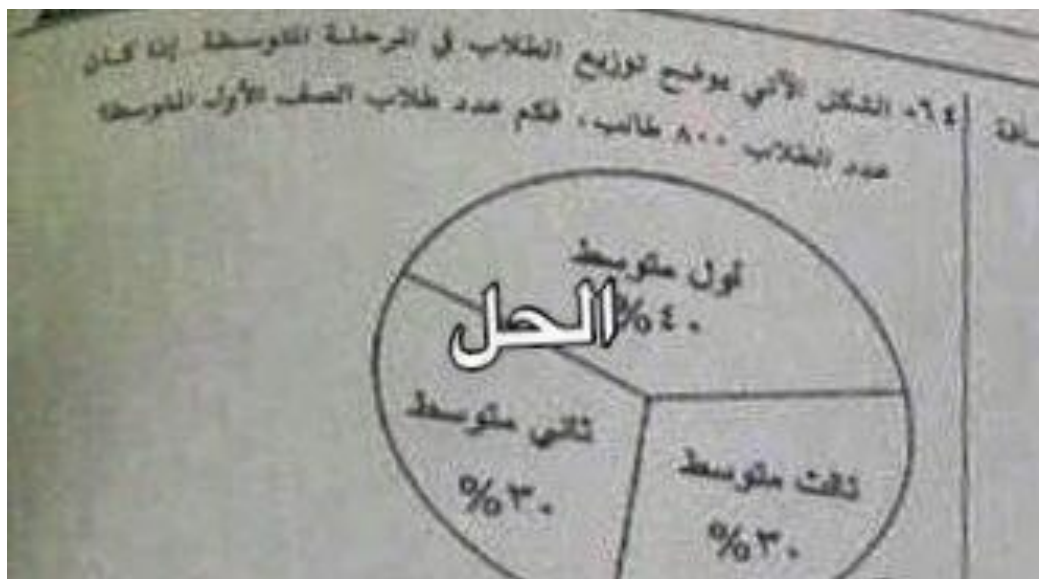 ٦٤- الشكل الآتي يوضح توزيع الطلاب في المرحلة المتوسطة. إذا كان
عدد الطلاب ٨٠٠ طالب، فكم عدد طلاب الصف الأول المتوسط؟
أول متوسط
%٤٠
الحل
ثاني متوسط
%٣٠
ثالث متوسط
%٣٠